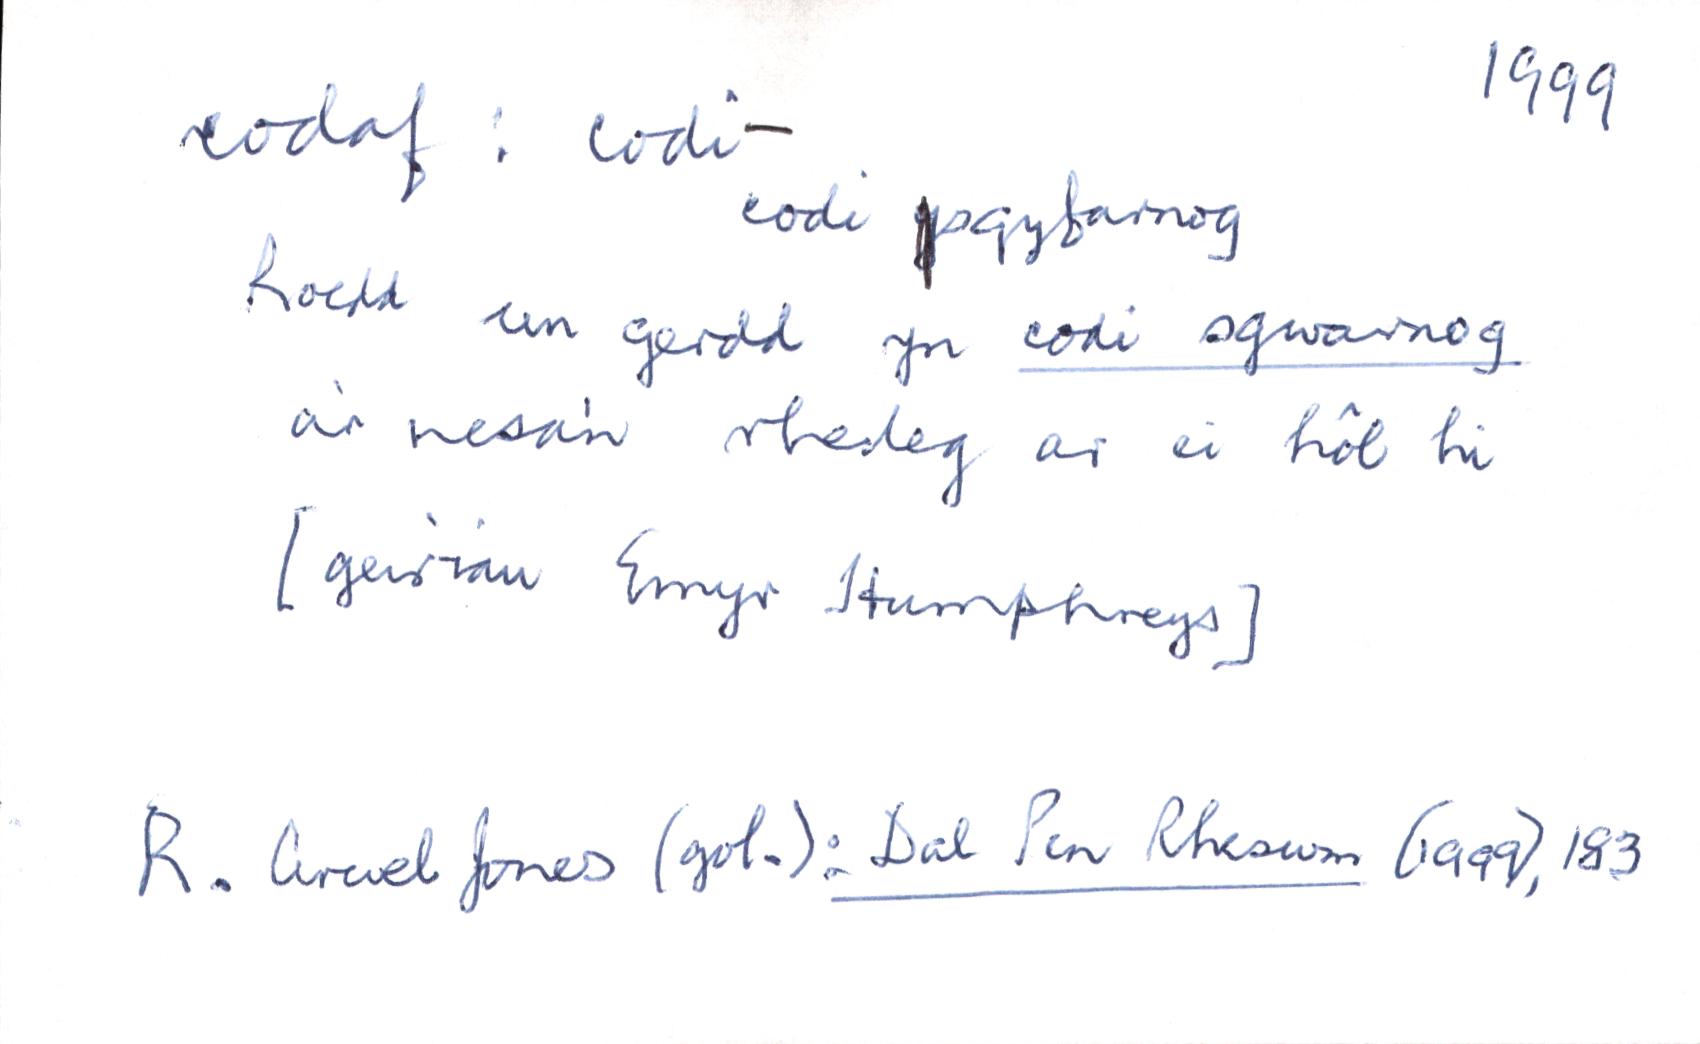 1999
codaf : codi –
codi ysgyfarnog
Roedd un gerdd yn codi sgwarnog
a'r nesa'n rhedeg ar ei hôl hi
[geiriau Emyr Humphreys]
R. Arwel Jones (gol.): Dal Pen Rheswm (1999), 183